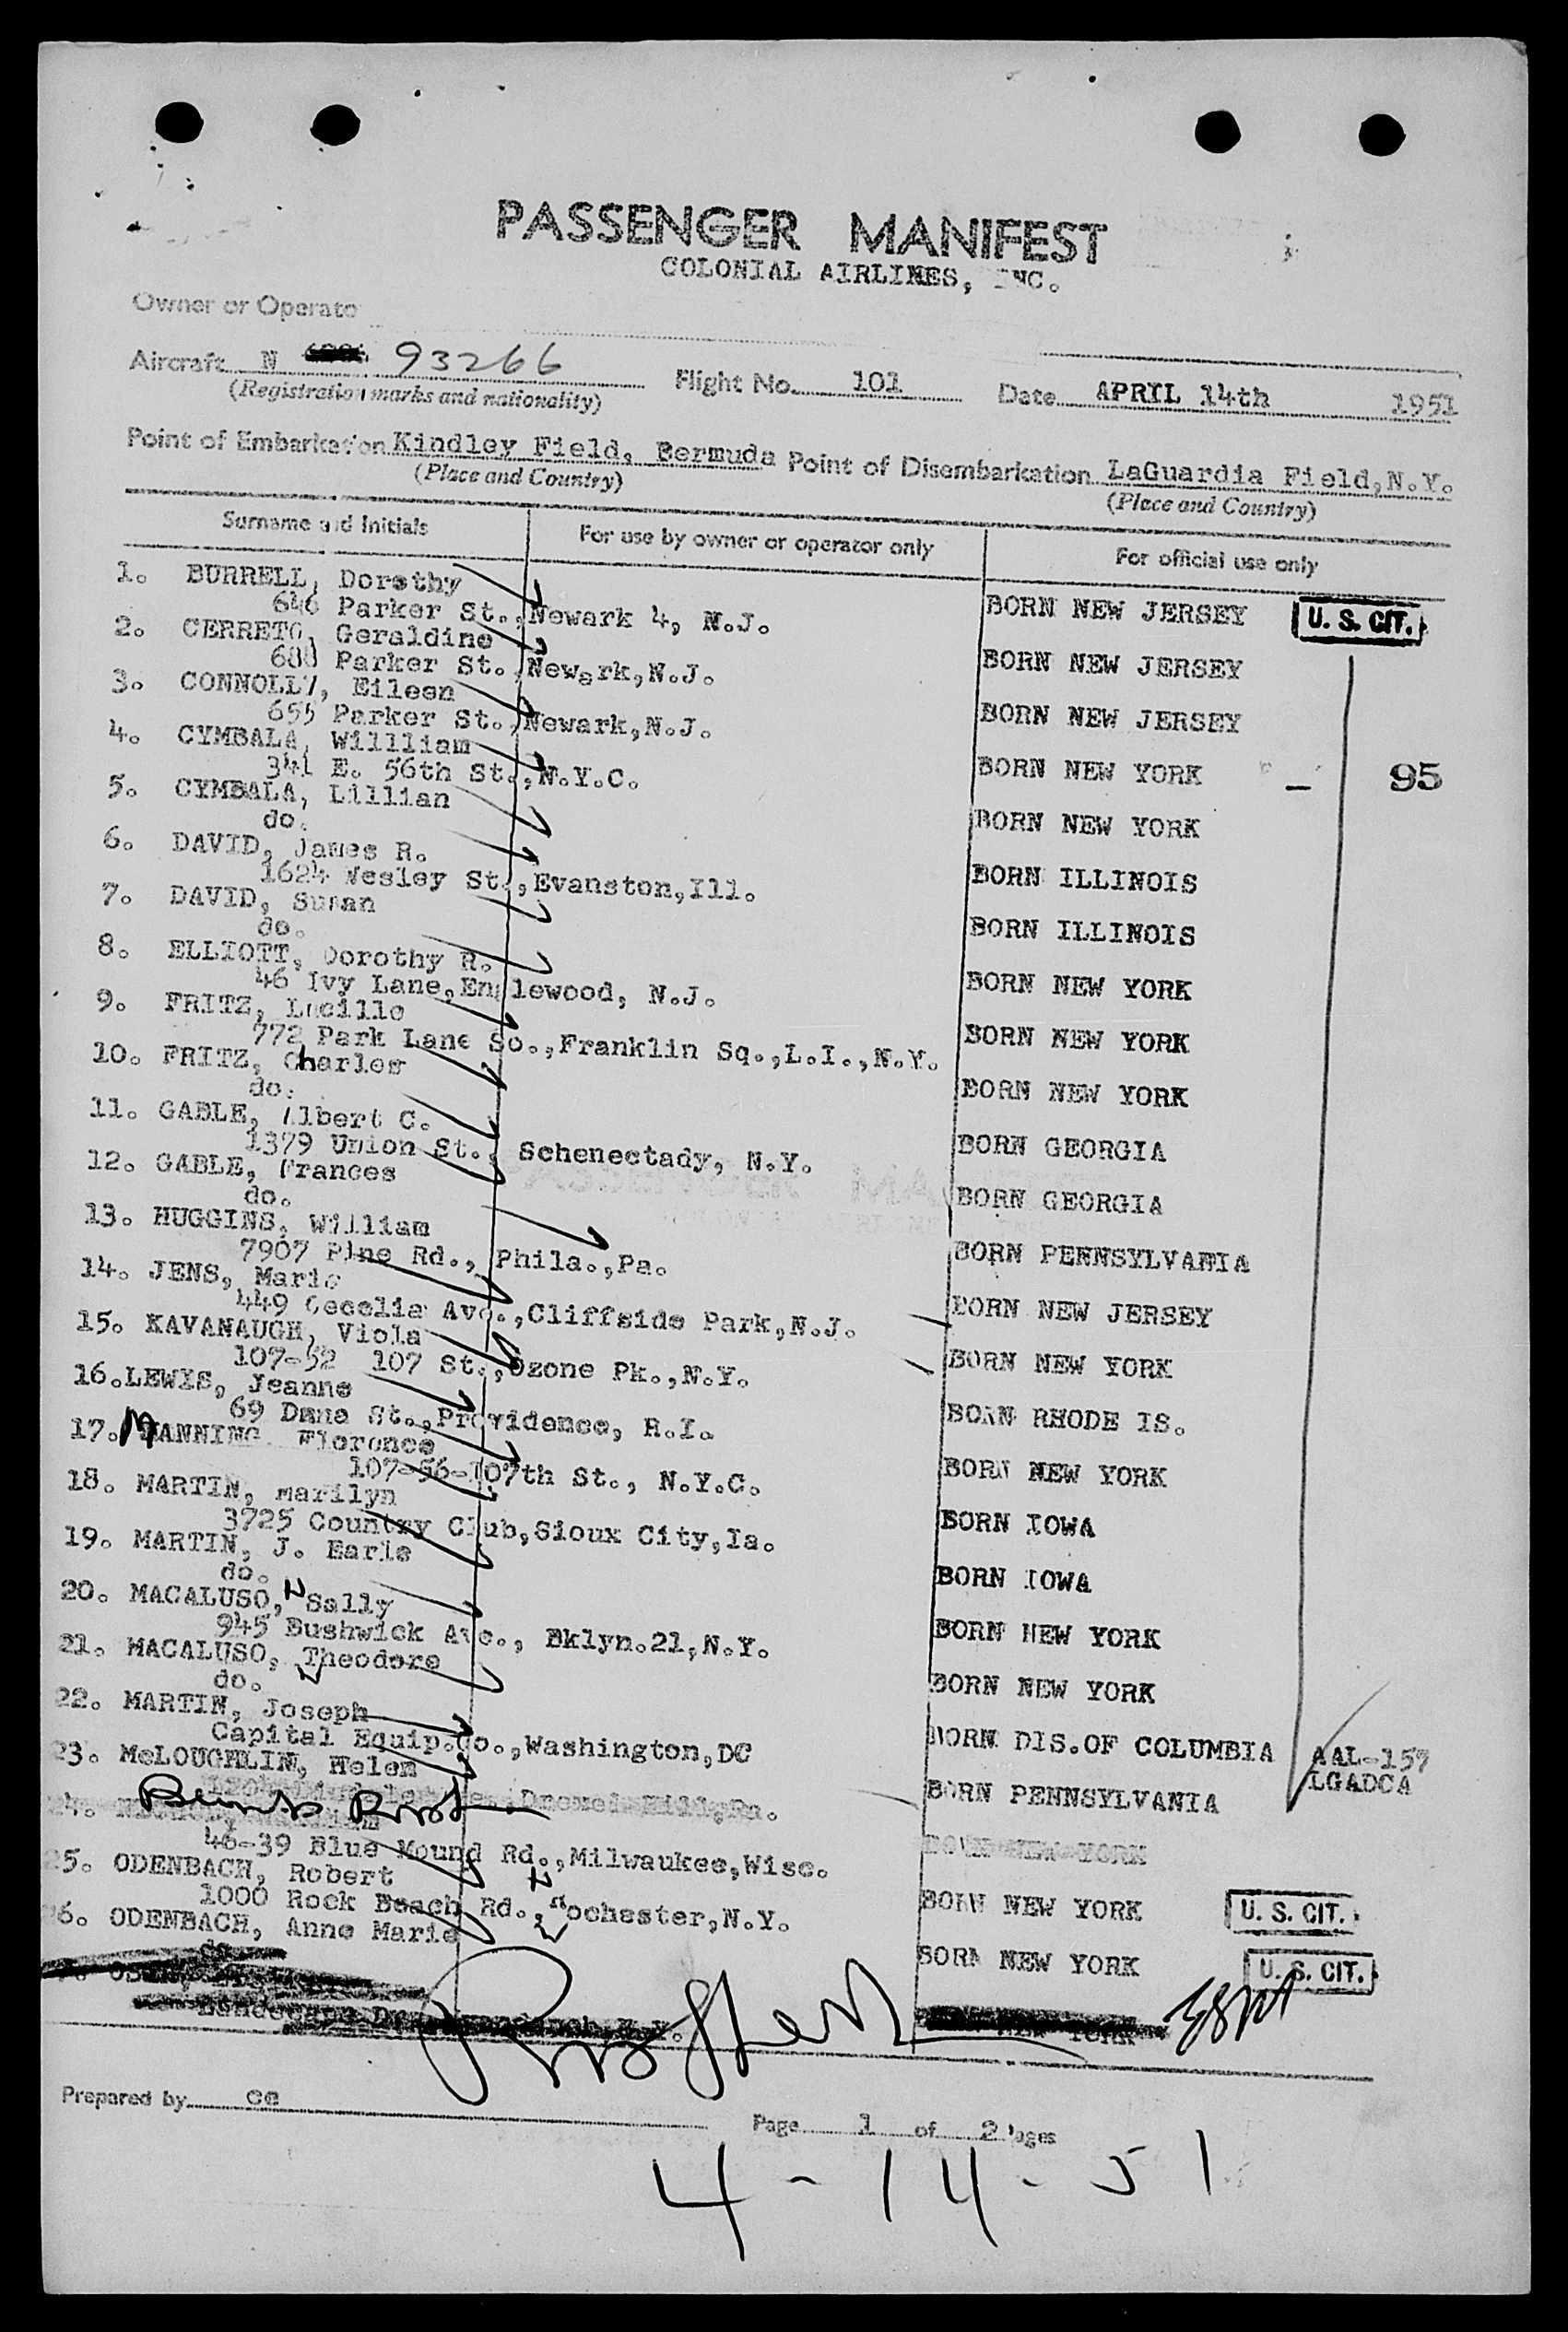 PASSENGER MANIFEST
COLONIAL AIRLINES, INC.
Owner or Operato
Aircraft N 93266 Flight No. 101 Date APRIL 14th 1951
(Registration marks and nationality)
Point of Embarkation Kindley Field, Bermuda Point of Disembarkation LaGuardia Field, N.Y.
(Place and Country) (Place and Country)
Surname and Initials For use by owner or operator only For official use only
1. BURRELL, Dorothy
646 Parker St., Newark 4, N.J. BORN NEW JERSEY U. S. CIT.
2. CERRETO, Geraldine
Parker St., Newark, N.J. BORN NEW JERSEY
3. CONNOLLY, Eileen
655 Parker St., Newark, N.J. BORN NEW JERSEY
4. CYMBALA, Willliam
341 E. 56th St., N.Y.C. BORN NEW YORK — 95
5. CYMBALA, Lillian
do. BORN NEW YORK
6. DAVID, James R.
1624 Wesley St., Evanston, Ill. BORN ILLINOIS
7. DAVID, Susan
do. BORN ILLINOIS
8. ELLIOTT, Dorothy R.
46 Ivy Lane, Englewood, N.J. BORN NEW YORK
9. FRITZ, Lucille
772 Park Lane So., Franklin Sq., L.I., N.Y. BORN NEW YORK
10. FRITZ, Charles
do. BORN NEW YORK
11. GABLE, Albert C.
1379 Union St., Schenectady, N.Y. BORN GEORGIA
12. GABLE, Frances
do. BORN GEORGIA
13. HUGGINS, William
7907 Pine Rd., Phila., Pa. BORN PENNSYLVANIA
14. JENS, Marie
449 Cecelia Ave., Cliffside Park, N.J. BORN NEW JERSEY
15. KAVANAUGH, Viola
107-52 107 St., Ozone Pk., N.Y. BORN NEW YORK
16. LEWIS, Jeanne
69 Dana St., Providence, R.I. BORN RHODE IS.
17. MANNING Florence
107-56-107th St., N.Y.C. BORN NEW YORK
18. MARTIN, Marilyn
3725 Country Club, Sioux City, Ia. BORN IOWA
19. MARTIN, J. Earle
do. BORN IOWA
20. MACALUSO, Sally
945 Bushwick Ave., Bklyn. 21, N.Y. BORN NEW YORK
21. MACALUSO, Theodore
do. BORN NEW YORK
22. MARTIN, Joseph
Capital Equip. Co., Washington, DC BORN DIS. OF COLUMBIA AAL-157
23. McLOUGHLIN, Helen LGADCA
Drexel Hill, Pa. BORN PENNSYLVANIA
24.
46-39 Blue Mound Rd., Milwaukee, Wisc. BORN NEW YORK
25. ODENBACH, Robert
1000 Rock Beach Rd., Rochester, N.Y. BORN NEW YORK U. S. CIT.
26. ODENBACH, Anne Marie
do. BORN NEW YORK U. S. CIT.
Prepared by ce
Page 1 of 2 Pages
4-14-51